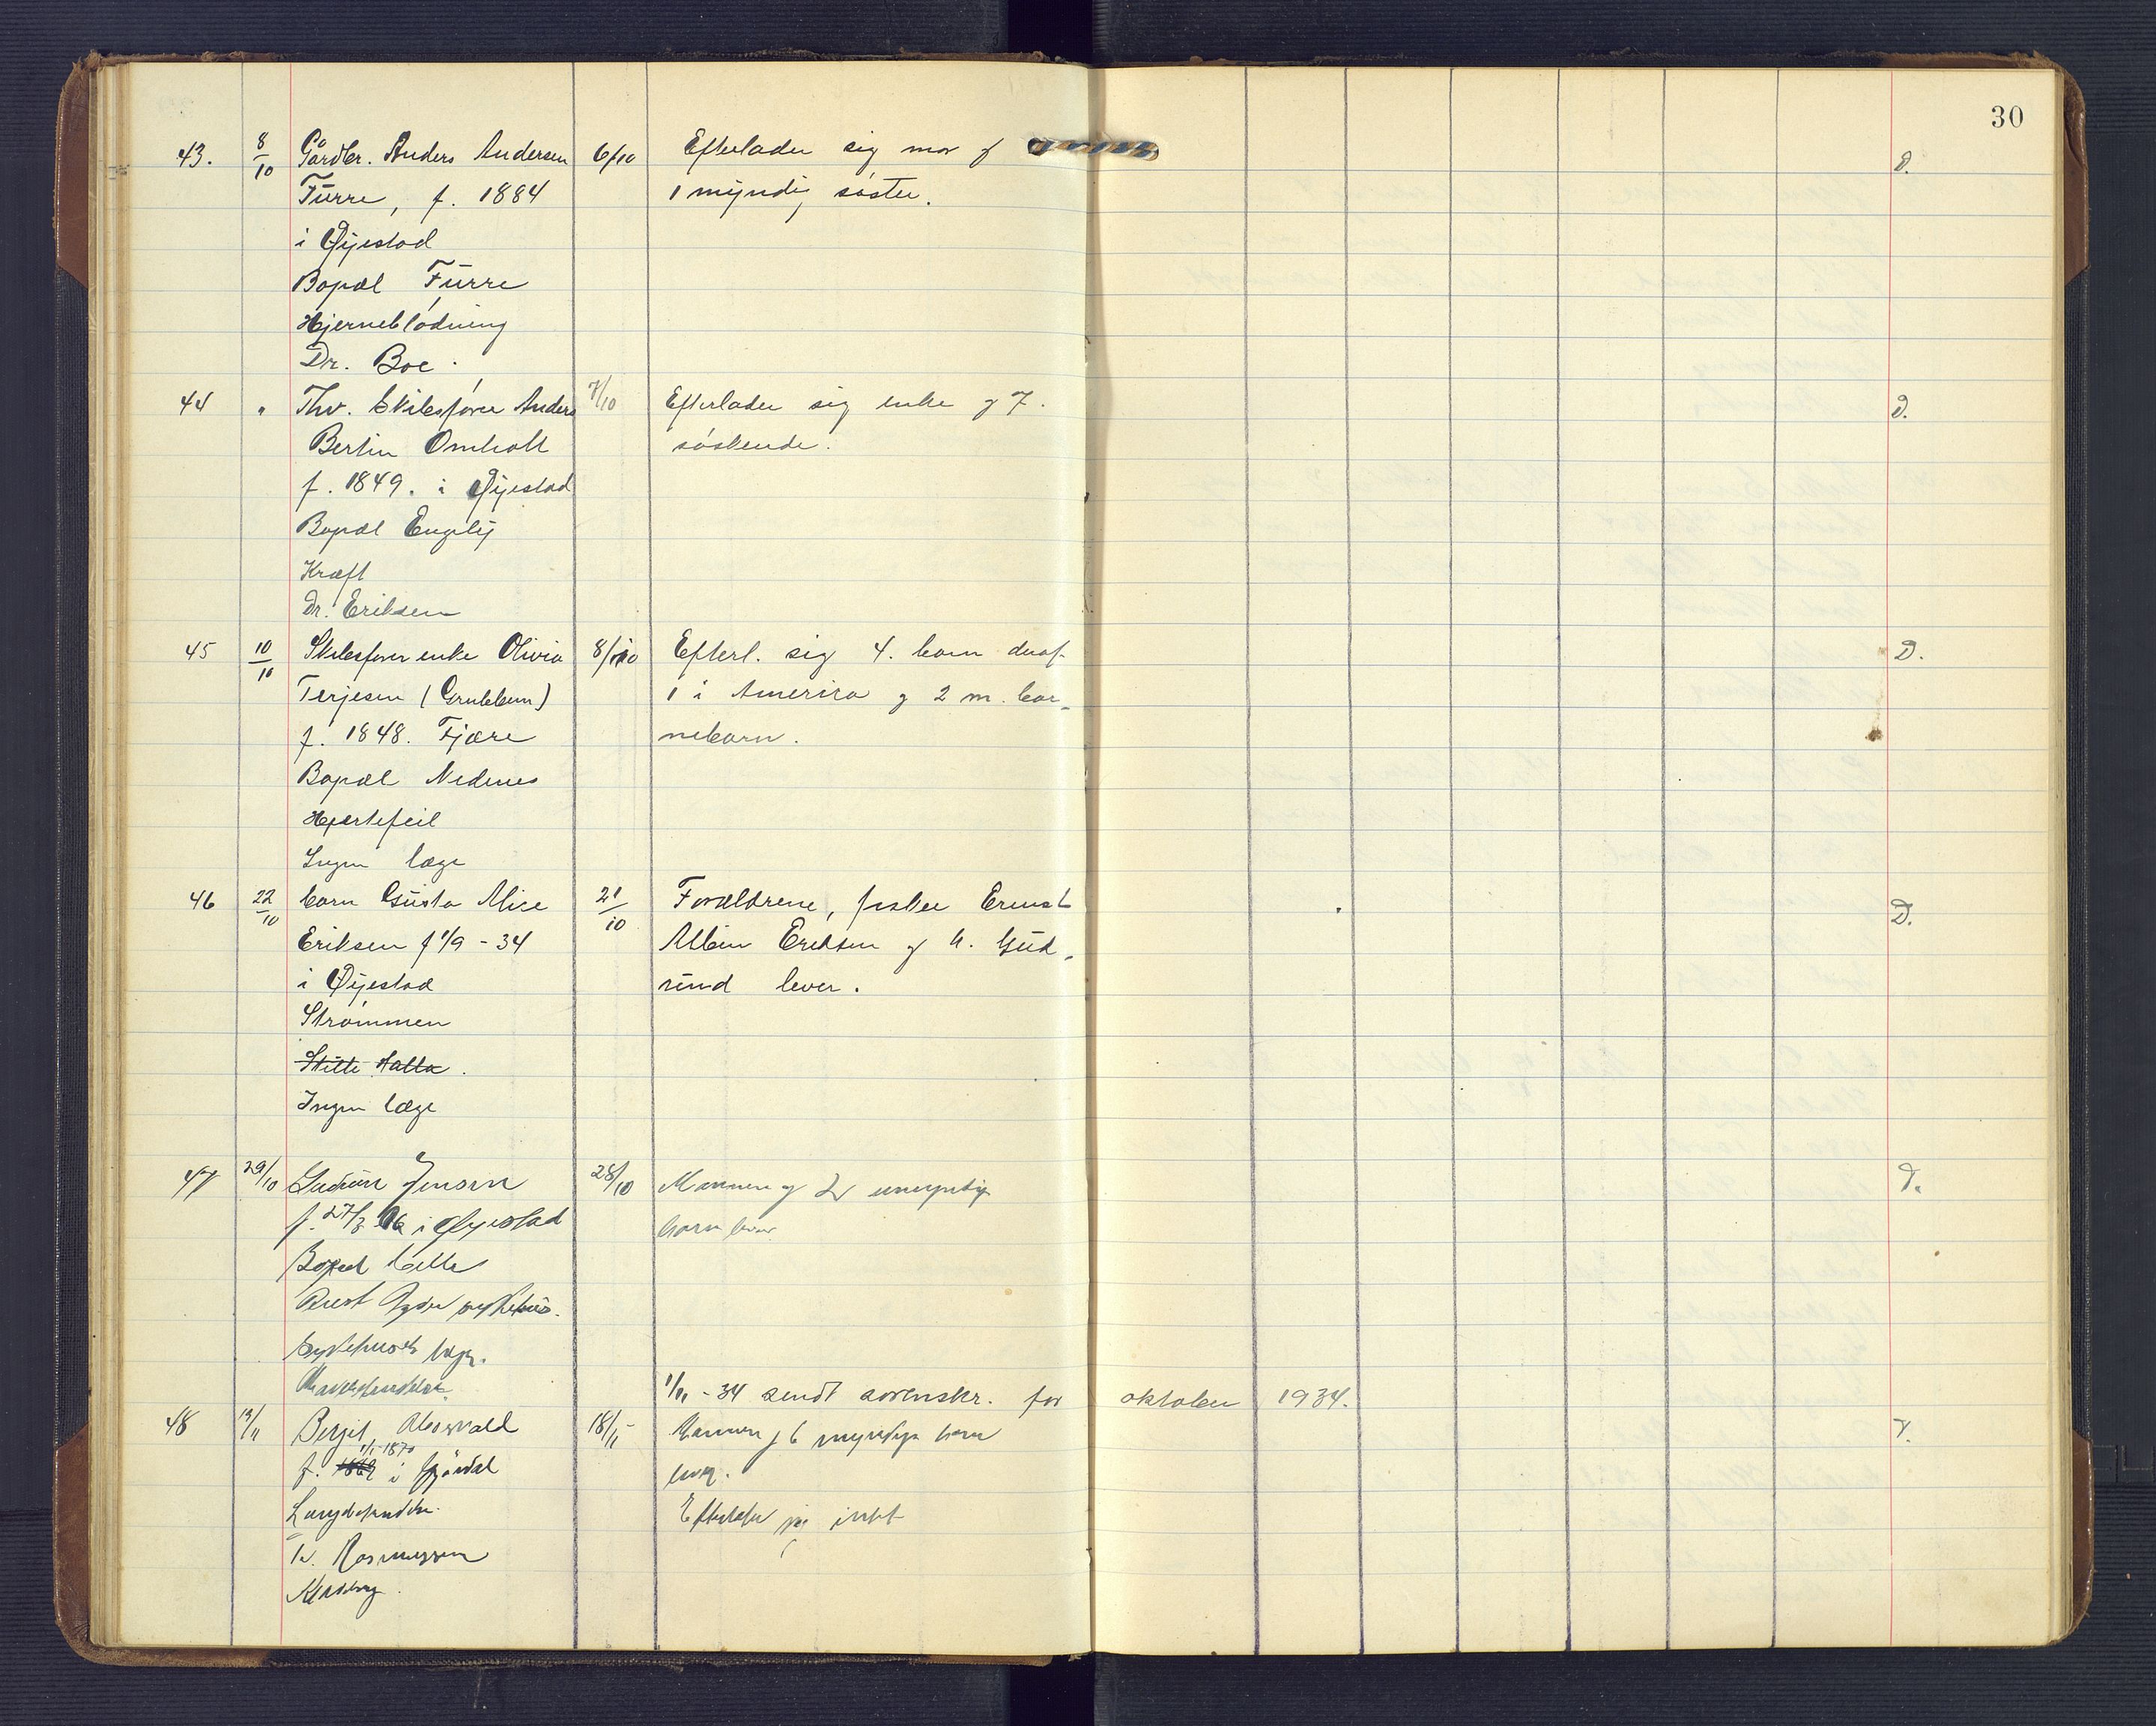 30
43. 8/10 Gårdbr. Anders Andersen 6/10 Efterlader sig mor og D.
Furre, f. 1884 1 myndig søster.
i Øyestad
Bopæl Furre
Hjerneblødning
Dr. Boe.
44 " Fhv. Skibsfører Anders 7/10 Efterlader sig enke og 7. D.
Bertin Omholt søskende.
f. 1849. i Øyestad
Bopæl Engely
Kræft
Dr. Eriksen
45 10/10 Skibsfører enke Olivia 8/10 Efterl. sig 4. barn deraf D.
Terjesen (Grubbum) 1 i Amerika og 2 m. bar-
f. 1848. Fjære nebarn.
Bopæl Nedenes
Hjertefeil
Ingen læge
46 22/10 barn Gusta Alice 21/10 Forældrene, fisker Ernst D.
Eriksen f 1/9 - 34 Albin Eriksen og h. Gud-
i Øyestad rund lever.
Strømmen
Ingen læge
47 29/10 Gudrun Jensen 28/10 Mannen og 2 umyndige
f. 27/3 06 i Øyestad barn lever
Bopæl
Aust Agder sykehus.
Sykehusets læge.
1/11 - 34 sendt sorenskr. for oktober 1934.
48 19/11 Bergit 18/11 Mannen og 6 myndige barn
f. 1/1-1870 i lever.
Efterlater sig intet
Dr. Rasmussen